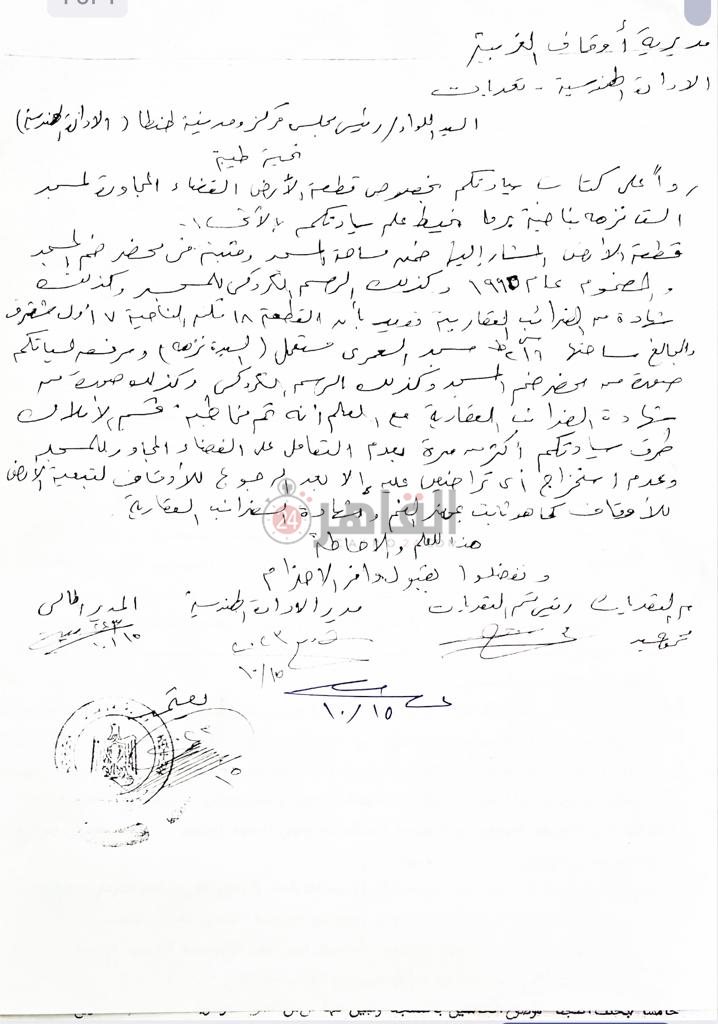 مديرية أوقاف الغربية
الادارة الهندسية - تعديات
السيد اللواء/ رئيس مجلس مركز ومدينة طنطا (الادارة الهندسية)
تحية طيبة
رداً على كتاب سيادتكم بخصوص قطعة الأرض الفضاء المجاورة لمسجد
بناحية نحيط علم سيادتكم بالآتى :-
قطعة الأرض المشار إليها ضمن مساحة المسجد ومثبتة فى محضر ضم المسجد
والمضموم عام ١٩٩٥ وكذلك الرسم الكروكى للمسجد وكذلك
شهادة من الضرائب العقارية تفيد بأن القطعة ١٨ الناحية ٧ أول
والبالغ مساحتها مسجد العمرى مستعمل (السيدة نزهه) ومرفق لسيادتكم
صورة من محضر ضم المسجد وكذلك الرسم الكروكى وكذلك صورة من
شهادة الضرائب العقارية مع العلم أنه تم مخاطبة قسم الأملاك
طرف سيادتكم أكثر من مرة بعدم التعامل على الفضاء المجاور للمسجد
وعدم استخراج أى تراخيص عليه إلا بعد الرجوع للأوقاف لتبعية الأرض
للأوقاف كما هو ثابت بمحضر الضم وشهادة الضرائب العقارية
القاهرة 24
هذا للعلم والاحاطة
وتفضلوا بقبول وافر الاحترام
م التعديات رئيس قسم التعديات مدير الادارة الهندسية المدير المالى
١٠/١٥
١٠/١٥
يعتمد